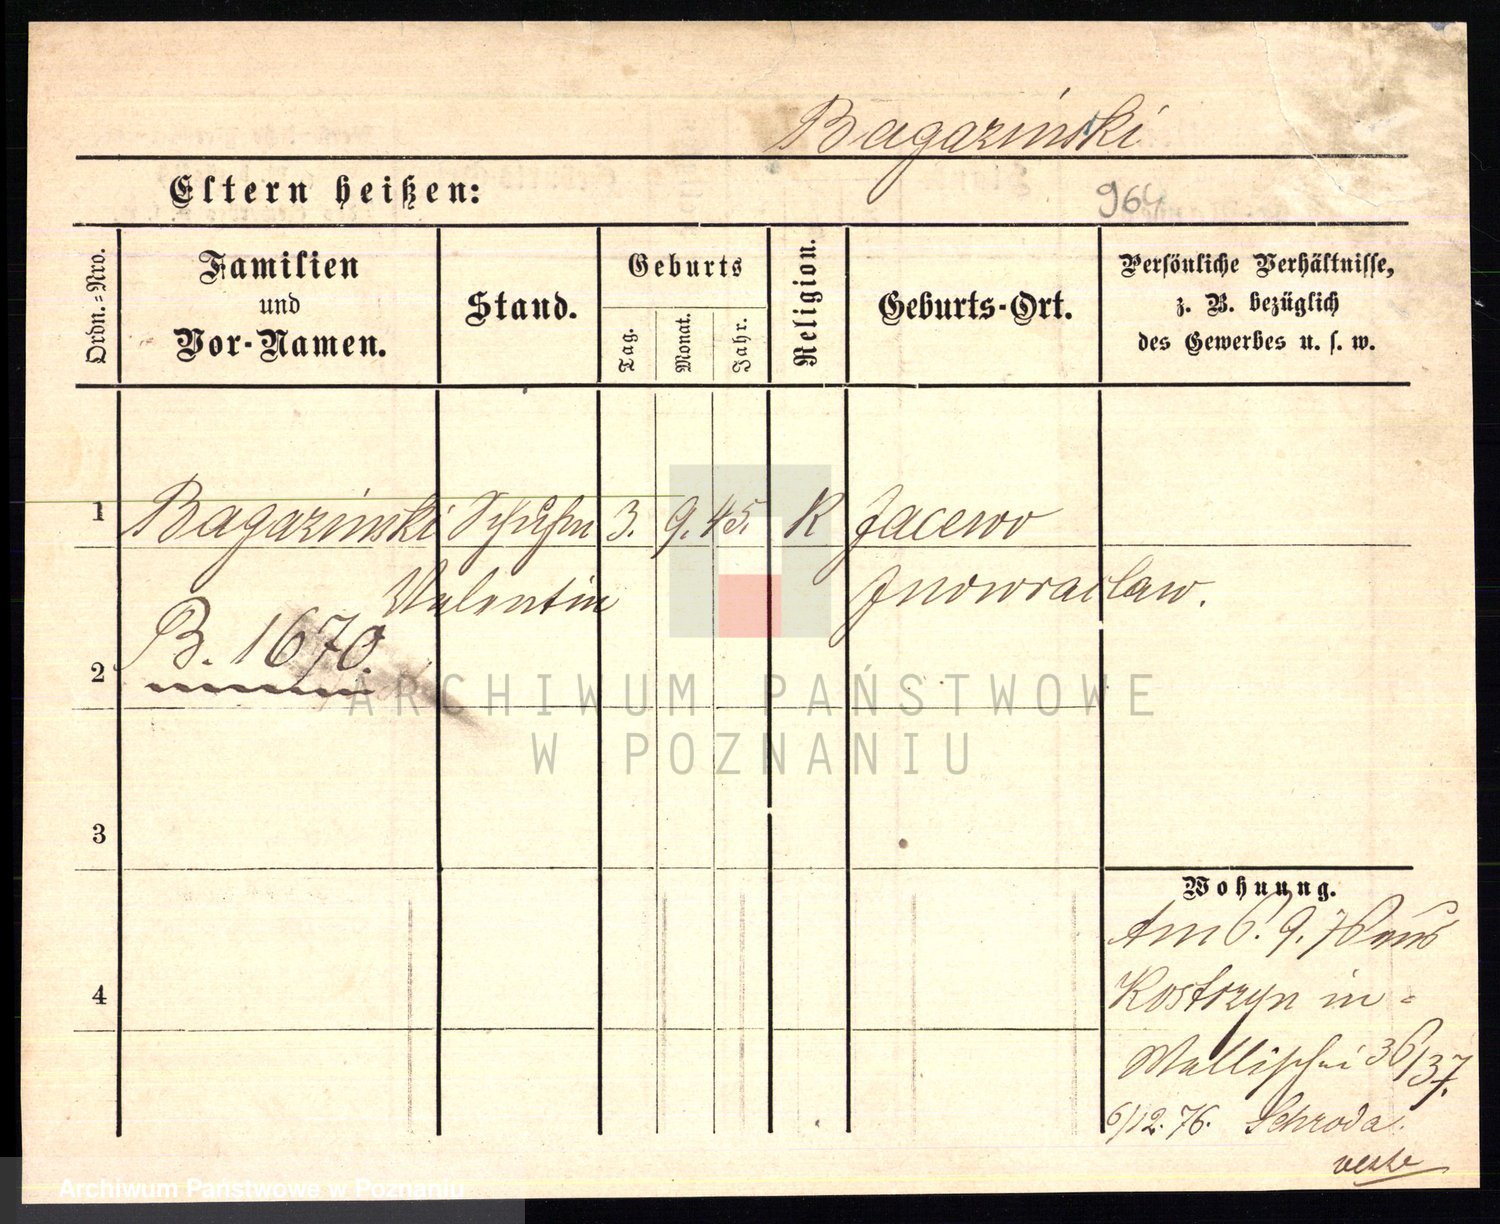 Bagazinski
Eltern heißen:
964
Ordn.=Nro.
Familien
und
Vor-Namen.
Stand.
Geburts
Tag.
Monat.
Jahr.
Religion.
Geburts-Ort.
Persönliche Verhältnisse,
z. B. bezüglich
des Gewerbes u. s. w.
1 Bagazinski Schuhm 3. 9. 45. K Jacewo
Valentin Inowraclaw.
B. 1670.
2
ARCHIWUM PAŃSTWOWE
W POZNANIU
3
Wohnung.
Am 6. 9. 76 aus
Kostrzyn in =
4
Wallischei 36/37.
6/12. 76. Schroda.
Archiwum Państwowe w Poznaniu